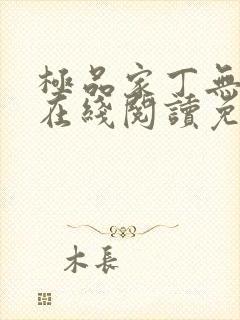 極品家丁無
在綫閱讀免
木長